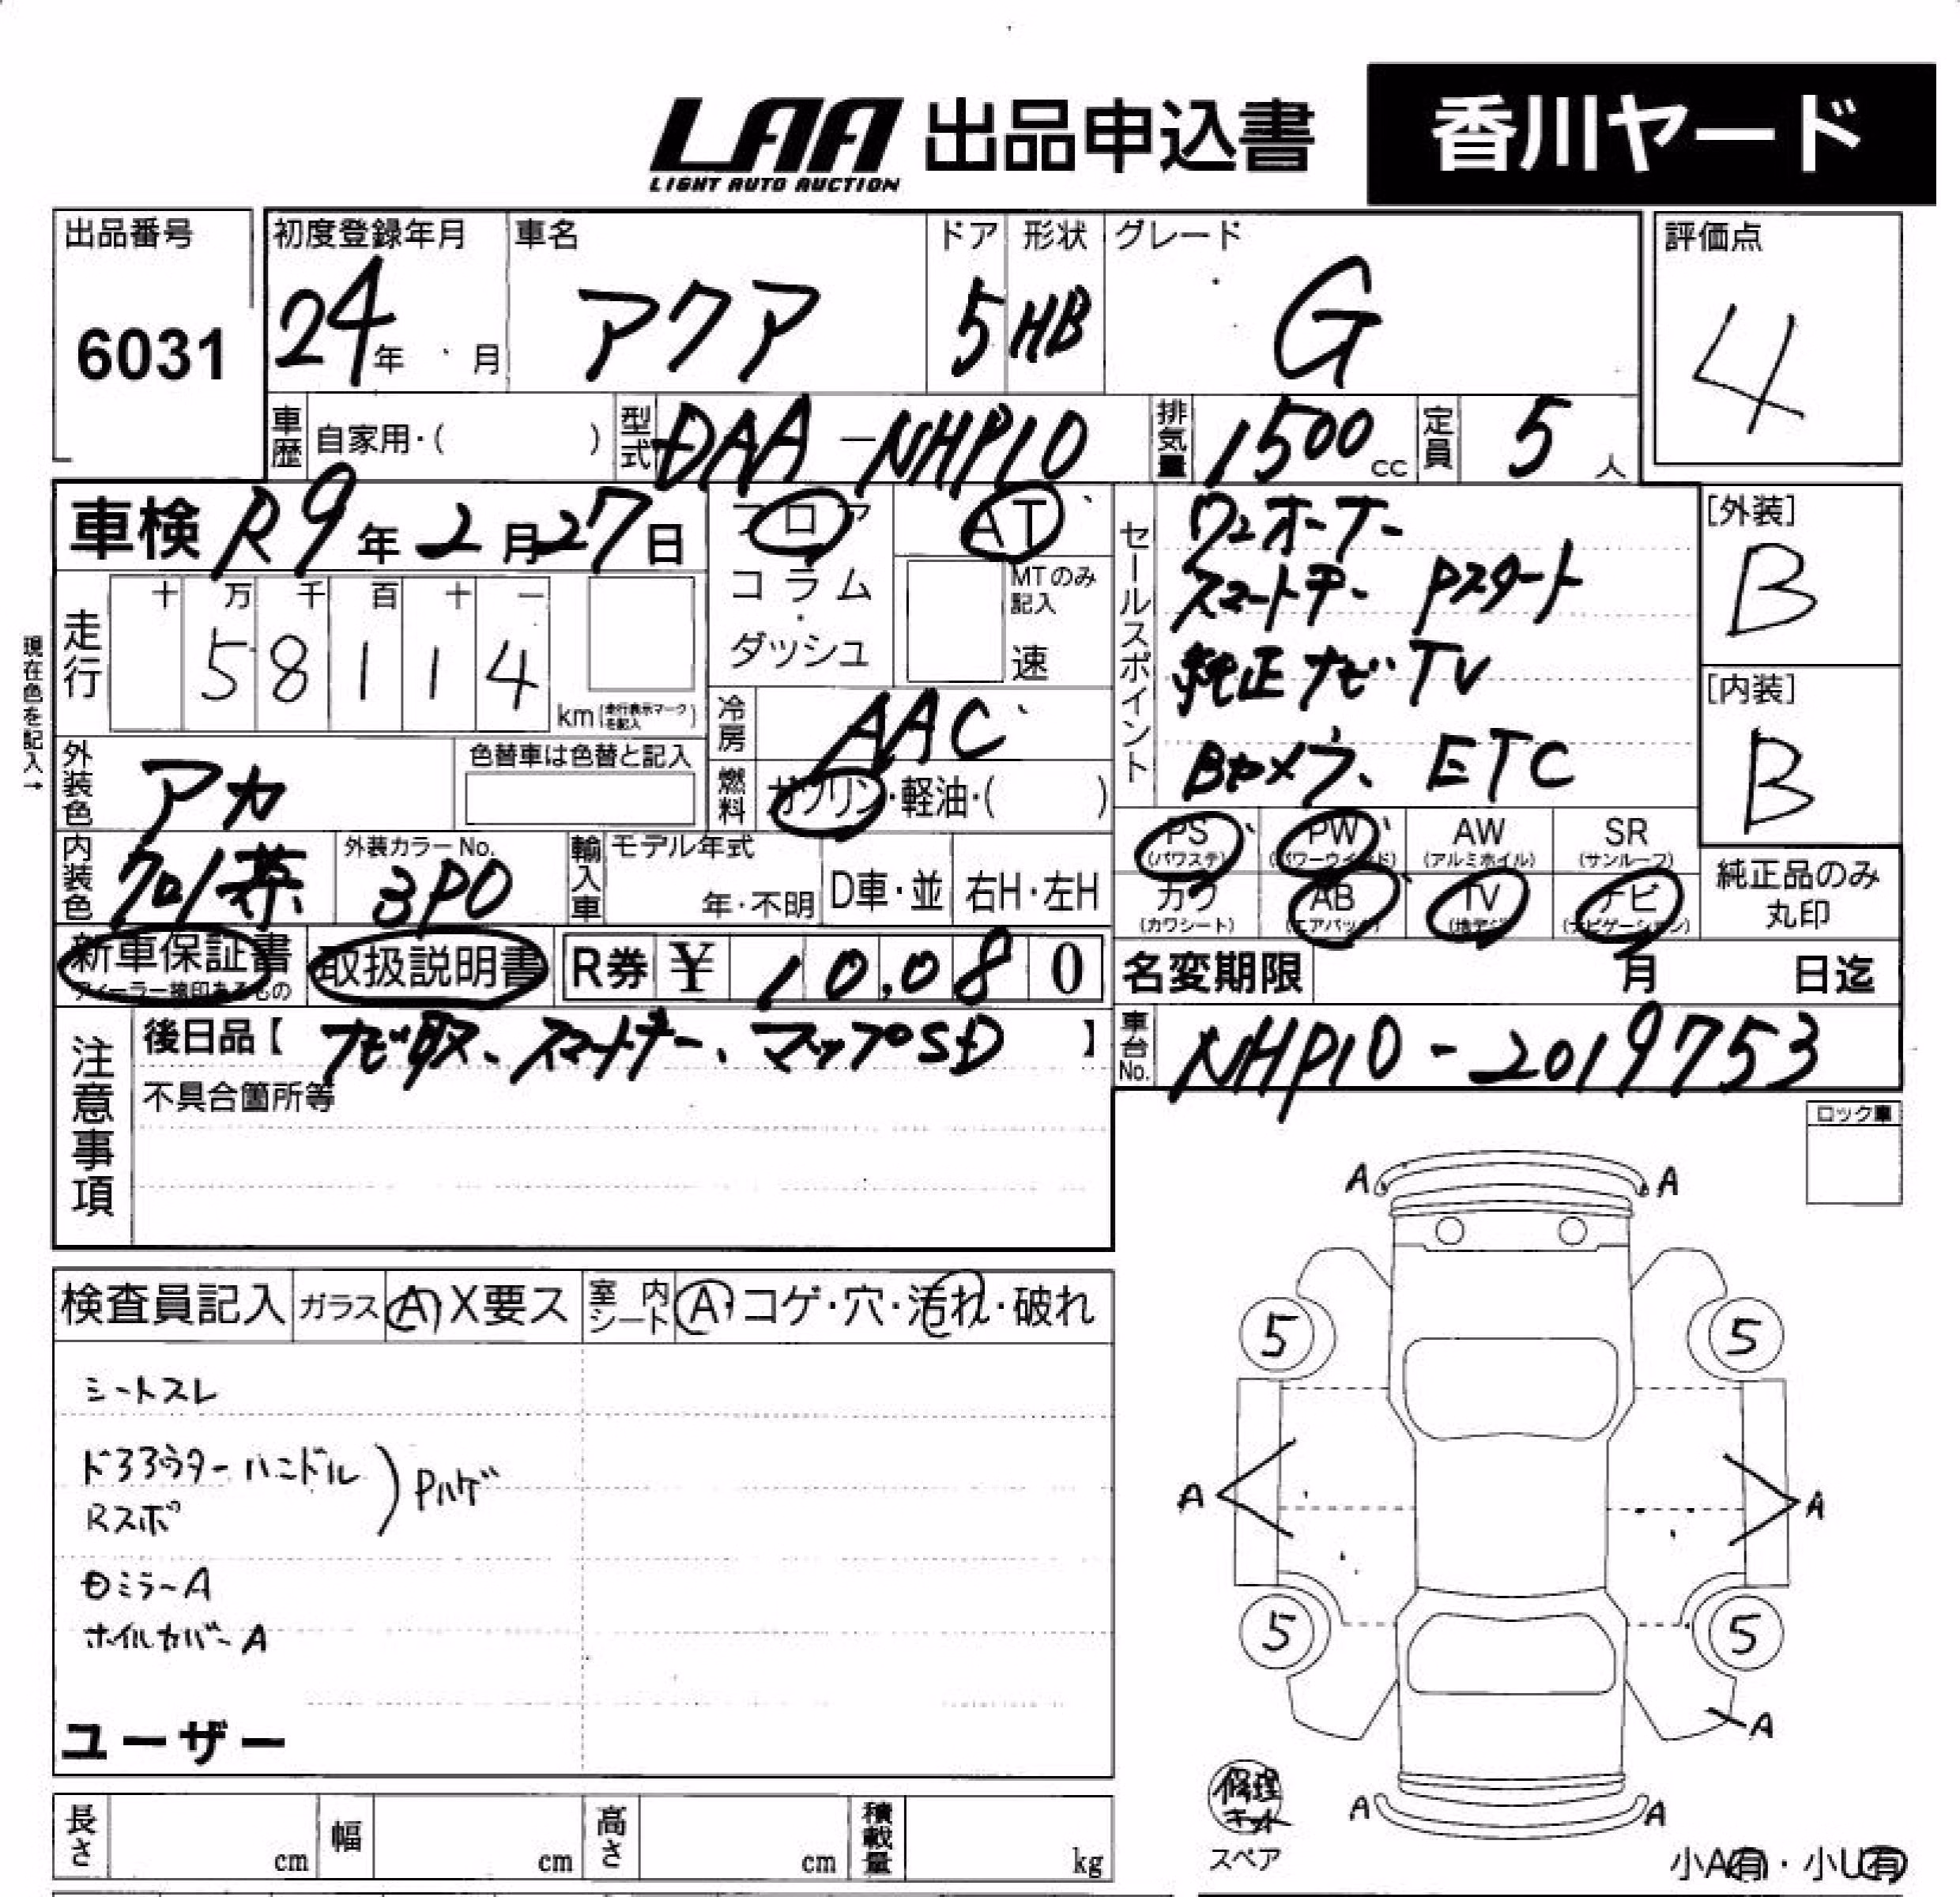 LAA 出品申込書 香川ヤード
LIGHT AUTO AUCTION
出品番号 初度登録年月 車名 ドア 形状 グレード 評価点
6031 24年 月 アクア 5 HB G 4
車歴 自家用・( ) 型式 DAA-NHP10 排気量 1500cc 定員 5人
車検 R9年2月27日 フロア AT
コラム・ダッシュ MTのみ記入 速
走行 十 万 千 百 十 一
58114 km (走行表示マークを記入)
現在色を記入→
冷房 AAC
燃料 ガソリン・軽油・( )
外装色 アカ 色替車は色替と記入
内装色 クロ/茶 外装カラーNo. 3P0 輸入車 モデル年式 年・不明 D車・並 右H・左H
セールスポイント
ワンオーナー
スマートキー Pスタート
純正ナビ TV
Bカメラ、ETC
[外装] B
[内装] B
PS (パワステ) PW (パワーウインド) AW (アルミホイル) SR (サンルーフ)
カワ (カワシート) AB (エアバック) TV (地デジ) ナビ (ナビゲーション)
純正品のみ丸印
新車保証書 取扱説明書 R券 ¥ 10,080
名変期限 月 日迄
注意事項
後日品【 ナビ取、スマートキー、マップSD 】
不具合箇所等
車台No. NHP10-2019753
ロック車
検査員記入 ガラス A・X要ス 室内シート A・コゲ・穴・汚れ・破れ
シートスレ
ドアアウターハンドル
Rスポ
Pハゲ
ミラーA
ホイルカバーA
ユーザー
A A
5 5
A A
5 5
A
A A
修理キット
スペア
小A有・小U有
長さ cm 幅 cm 高さ cm 積載量 kg